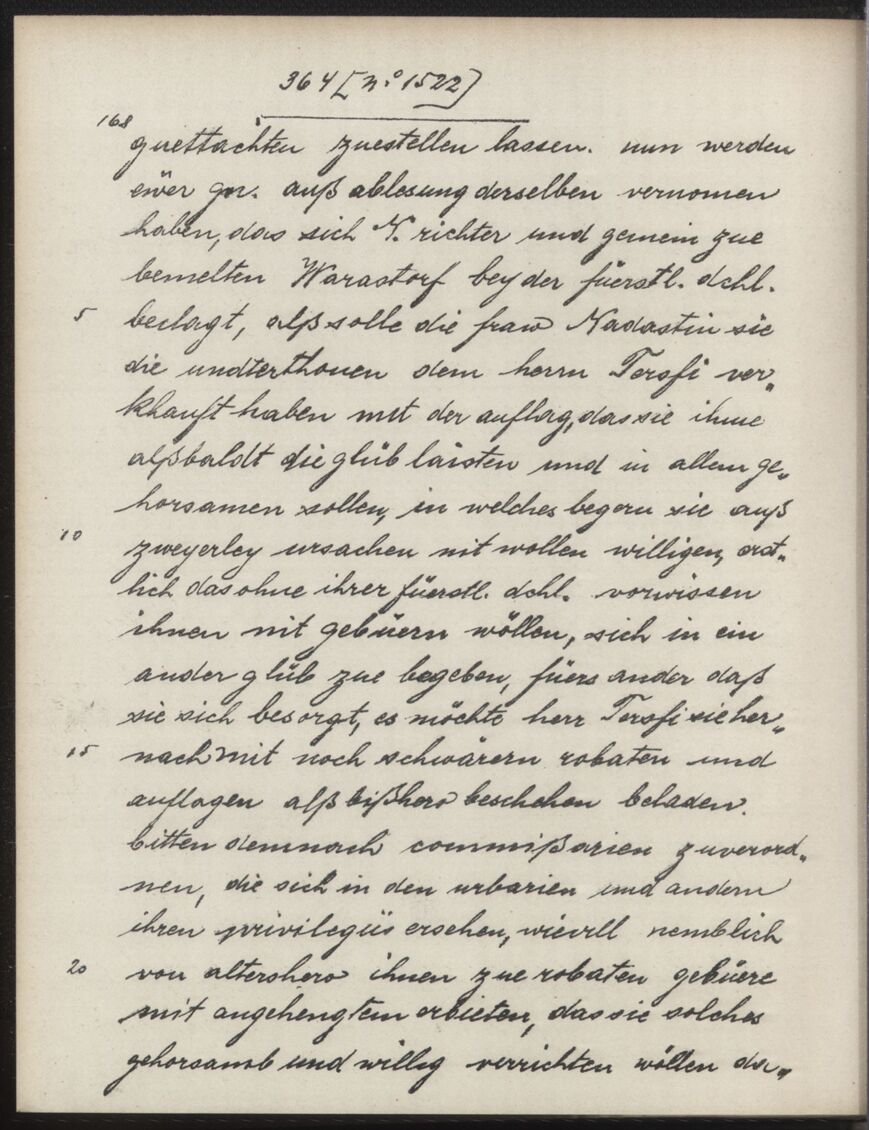 364 [n.° 1522]
168
guettachten zuestellen lassen. nun werden
ewer gn. auß ablesung derselben vernomen
haben, das sich N. richter und gemein zue
bemelten Warastorf bey der füerstl. dchl.
5 beclagt, alß solle die fraw Nadastin sie
die undterthonen dem herrn Tersfi ver„
khauft haben mit der auflag, das sie ihme
alßbaldt die glüb laisten und in allem ge„
horsamen sollen, in welches begern sie auß
10 zweyerley ursachen nit wollen willigen, erst„
lich das ohne ihrer füerstl. dchl. vorwissen
ihnen nit gebüern wöllen, sich in ein
ander glüb zue begeben, füers ander daß
sie sich besorgt, es möchte herr Tersfi sie her„
15 nach mit noch schwärern robaten und
auflagen alß bißhero beschehen beladen.
bitten demnach commißarien zuverord„
nen, die sich in den urbarien und andern
ihren privilegiis ersehen, wievill nemblich
20 von altershero ihnen zue robaten gebüere
mit angehengtem erbieten, das sie solches
gehorsamb und willig verrichten wöllen da„